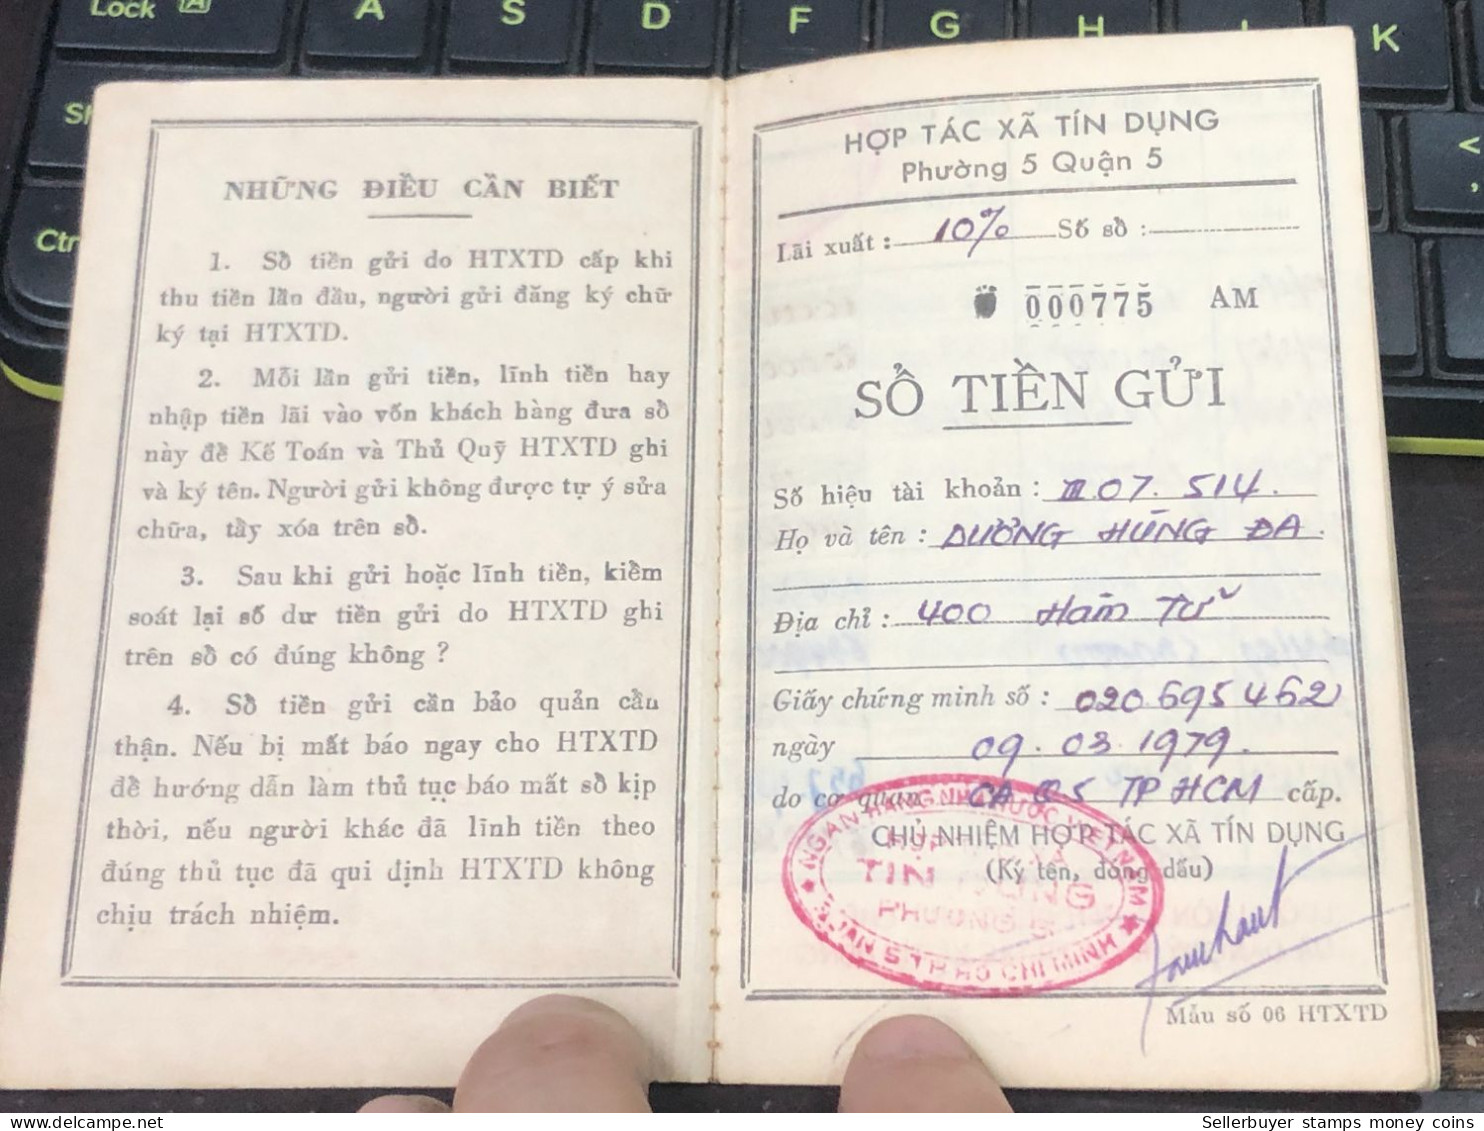 Lock A S D F G H J K
NHỮNG ĐIỀU CẦN BIẾT
1. Sổ tiền gửi do HTXTD cấp khi
thu tiền lần đầu, người gửi đăng ký chữ
ký tại HTXTD.
2. Mỗi lần gửi tiền, lĩnh tiền hay
nhập tiền lãi vào vốn khách hàng đưa sổ
này để Kế Toán và Thủ Quỹ HTXTD ghi
và ký tên. Người gửi không được tự ý sửa
chữa, tẩy xóa trên sổ.
3. Sau khi gửi hoặc lĩnh tiền, kiểm
soát lại số dư tiền gửi do HTXTD ghi
trên sổ có đúng không ?
4. Sổ tiền gửi cần bảo quản cẩu
thận. Nếu bị mất báo ngay cho HTXTD
để hướng dẫn làm thủ tục báo mất sổ kịp
thời, nếu người khác đã lĩnh tiền theo
đúng thủ tục đã qui định HTXTD không
chịu trách nhiệm.
HỢP TÁC XÃ TÍN DỤNG
Phường 5 Quận 5
Lãi xuất : 10% Số sổ :
000775 AM
SỔ TIỀN GỬI
Số hiệu tài khoản : III 07. 514.
Họ và tên : DƯƠNG HÙNG ĐA.
Địa chỉ : 400 Hàm Tử
Giấy chứng minh số : 020.695462
ngày 09.03.1979.
do cơ quan CA Q5 TP HCM cấp.
CHỦ NHIỆM HỢP TÁC XÃ TÍN DỤNG
(Ký tên, đóng dấu)
NGÂN HÀNG NHÀ NƯỚC VIỆT NAM
TÍN DỤNG
PHƯỜNG 5
QUẬN 5 TP HỒ CHÍ MINH
Mẫu số 06 HTXTD
Ctr
Sellerbuyer stamps money coins